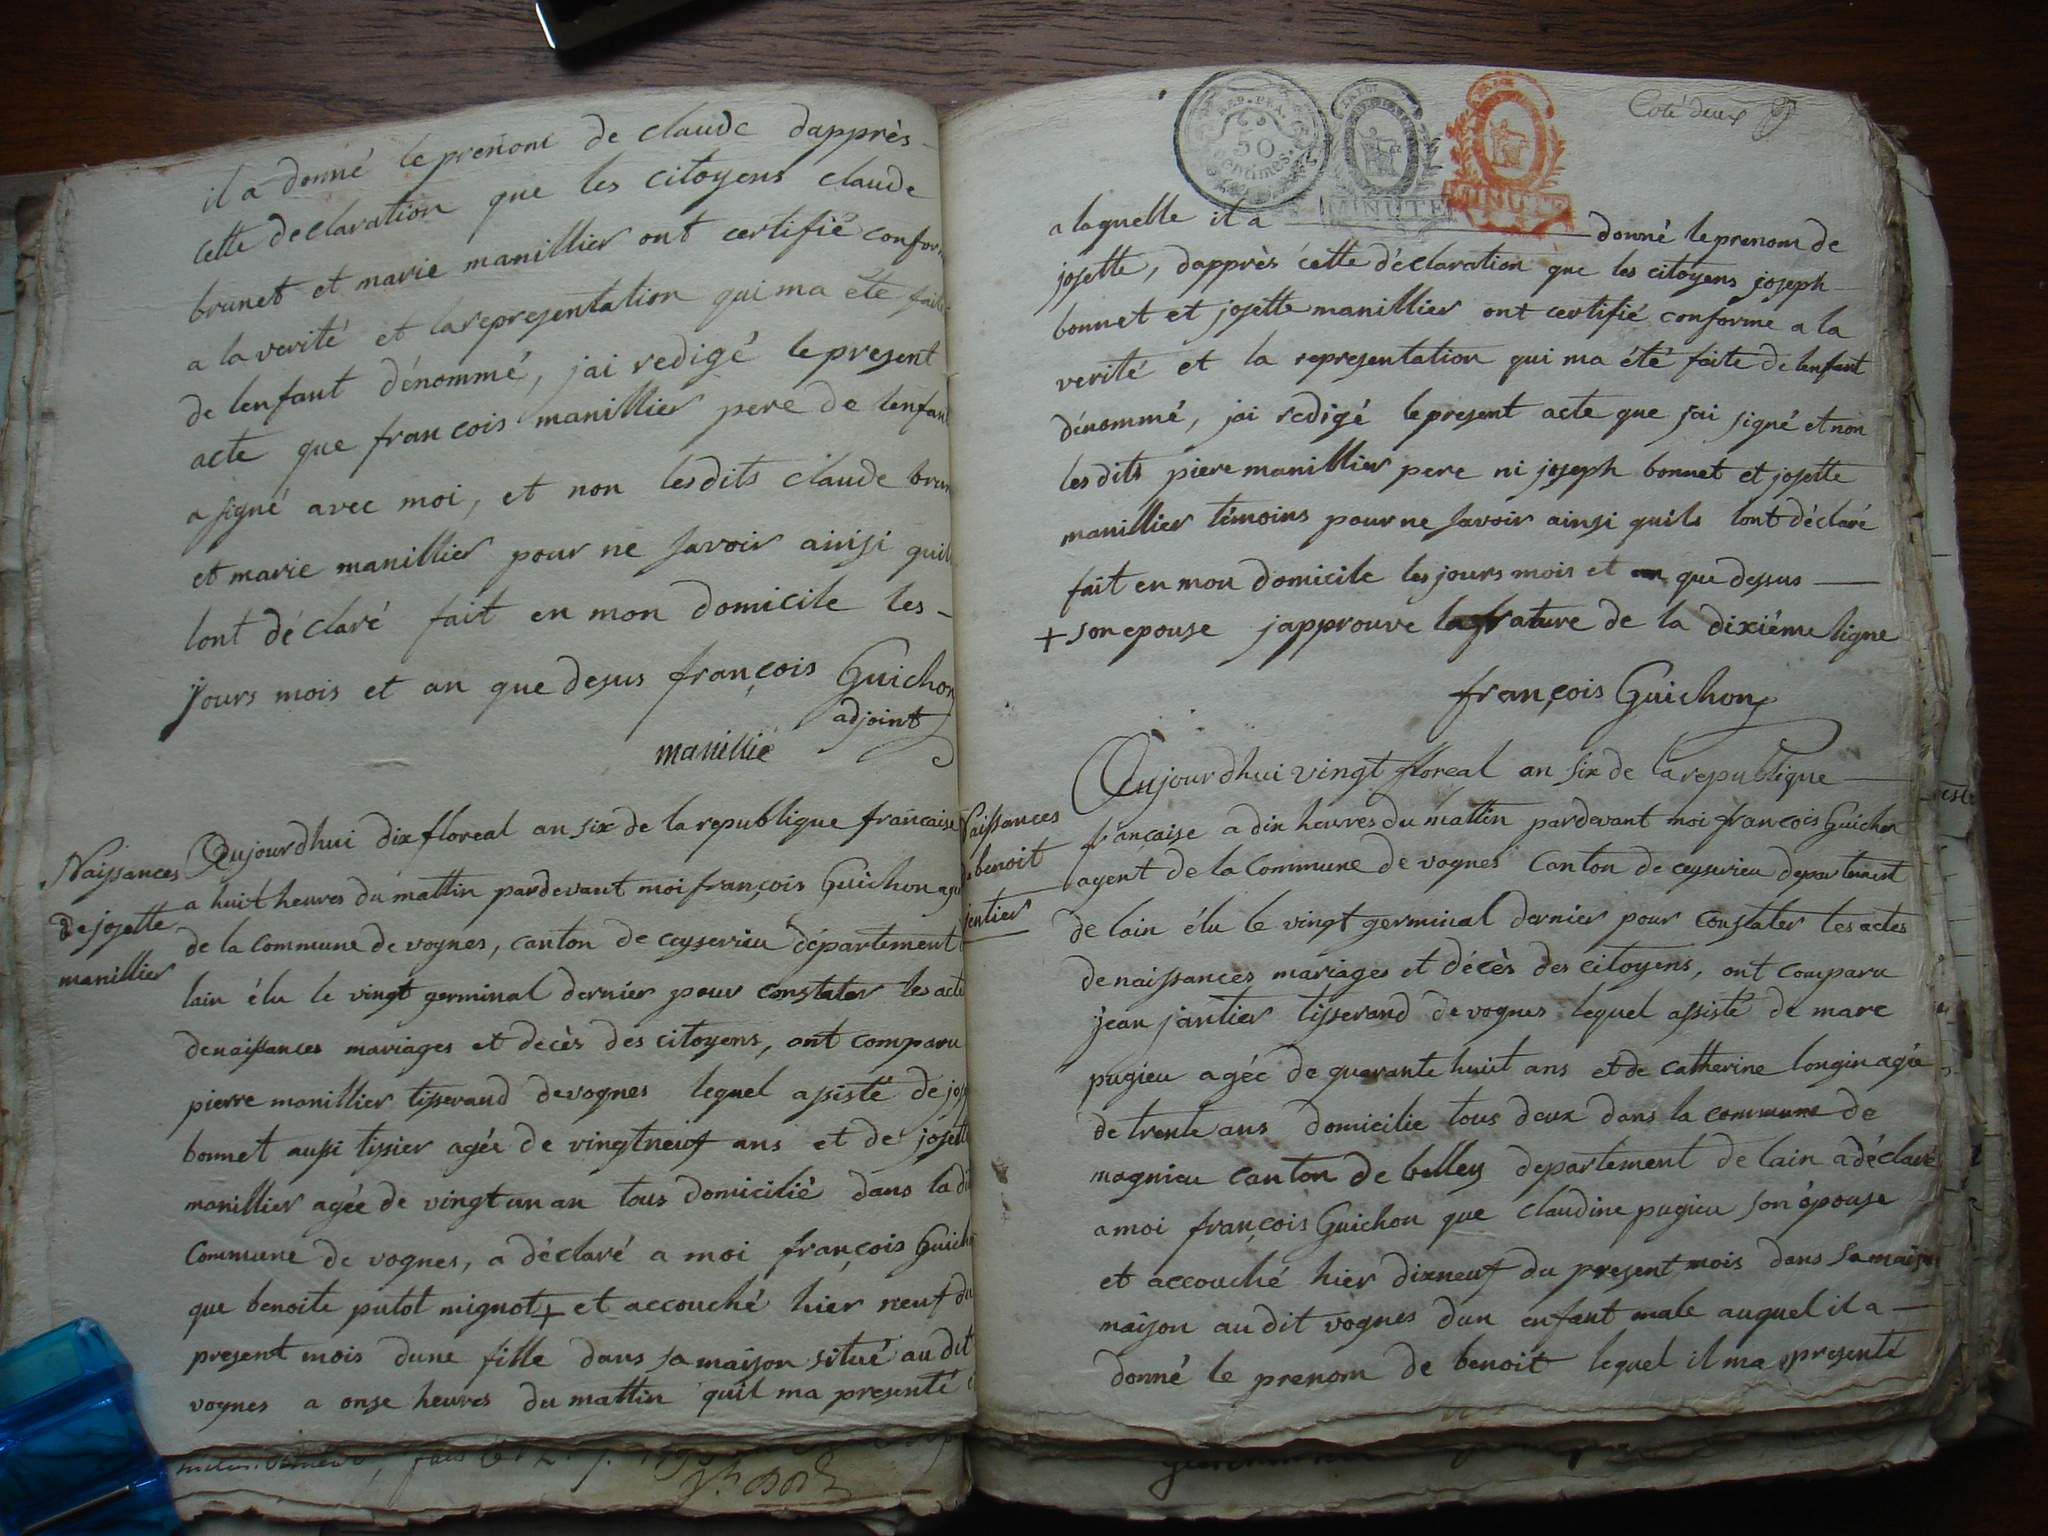 il a donné le prenom de claude dapprès
cette declaration que les citoyens claude
brunet et marie manillier ont certifié confor
a la verité et la representation qui ma été faite
de lenfant dénommé, jai redigé le present
acte que francois manillier pere de lenfan
a signé avec moi, et non lesdits claude brun
et marie manillier pour ne savoir ainsi quil
lont déclaré fait en mon domicile les -
jours mois et an que desus françois Guichon
adjoint
manillié
Naissances
de josette
manillier
Aujourdhui dix floreal an six de la republique francaise
a huit heures du mattin pardevant moi françois Guichon age
de la commune de vognes, canton de ceyserieu département
lain élu le vingt germinal dernier pour constater les acte
de naissances mariages et decès des citoyens, ont comparu
pierre manillier tisserand de vognes lequel assisté de jos
bonnet aussi tissier agée de vingtneuf ans et de josett
manillier agée de vingt un an tous domicilié dans la di
commune de vognes, a déclaré a moi françois Guich
que benoite putot mignot + et accouché hier neuf du
present mois dune fille dans sa maison situé au dit
vognes a onse heures du mattin quil ma presenté
REP. FRA.
50
centimes
MINUTE
MINUTE
Coté deux
a laquelle il a donné le prenom de
josette, dapprès cette déclaration que les citoyens joseph
bonnet et josette manillier ont certifié conforme a la
verité et la representation qui ma été faite de lenfant
dénommé, jai redigé le present acte que jai signé et non
les dits piere manillier pere ni joseph bonnet et josette
manillier témoins pour ne savoir ainsi quils lont déclaré
fait en mon domicile les jours mois et an que dessus
+ son epouse japprouve la frature de la dixiéme ligne
françois Guichon
Naissances
benoit
jentier
Aujourdhui vingt floreal an six de la republique
française a dix heures du mattin pardevant moi francois Guichon
agent de la Commune de vognes Canton de ceyserieu departement
de lain élu le vingt germinal dernier pour constater les actes
de naissances mariages et décès des citoyens, ont comparu
jean jantier tisserand de vognes lequel assisté de marc
pugieu agée de quarante huit ans et de catherine longin agée
de trente ans domicilie tous deux dans la commune de
magnieu canton de belley departement de lain a déclaré
a moi françois Guichon que claudine pugieu son épouse
et accouché hier dixneuf du present mois dans sa maison
maison au dit vognes dun enfant male auquel il a
donné le prenom de benoit lequel il ma presenté